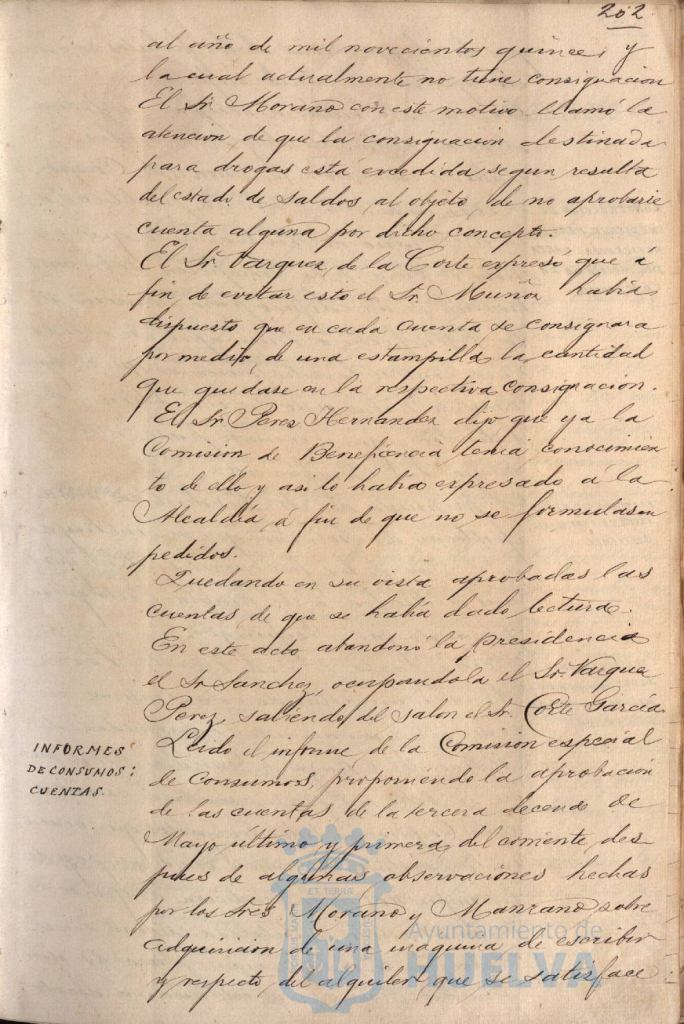 202
al año de mil novecientos quince, y
la cual actualmente no tiene consignacion
El Sr. Moraño con este motivo llamó la
atencion de que la consignacion destinada
para drogas está excedida segun resulta
del estado de saldos al objeto de no aprobarse
cuenta alguna por dicho concepto.
El Sr. Vazquez de la Corte expresó que á
fin de evitar esto el Sr. Muñoz habia
dispuesto que en cada cuenta se consignara
por medio de una estampilla la cantidad
que quedase en la respectiva consignacion.
El Sr. Perez Hernandez dijo que ya la
Comision de Beneficencia tenia conocimien
to de ello y asi lo habia expresado á la
Alcaldia á fin de que no se formulasen
pedidos.
Quedando en su vista aprobadas las
cuentas de que se habia dado lectura.
En este acto abandonó la presidencia
el Sr. Sanchez, ocupandola el Sr. Vazquez
Perez, saliendo del salon el Sr. Corte Garcia.
INFORMES
DE CONSUMOS:
CUENTAS.
Leido el informe de la Comision especial
de Consumos, proponiendo la aprobacion
de las cuentas de la tercera decena de
Mayo último y primera del corriente, des-
pues de algunas observaciones hechas
por los Sres. Moraño y Manzano sobre
adquisicion de una maquina de escribir
y respecto del alquiler que se satisface
Ayuntamiento de
HUELVA